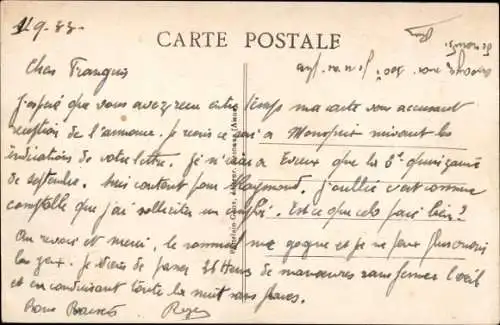 11-9-33-
CARTE POSTALE
Cher François
J'espère que vous avez reçu entre temps ma carte vous accusant
réception de l'annonce. Je renvoie à Monsieur suivant les
indications de votre lettre. Je n'irai à Evreux que la 2e quinzaine
de septembre. Suis content pour Raymond. J'oublie c'est comme
comptable que j'ai sollicité un emploi. Est ce que cela fait bien?
Au revoir et merci, le sommeil me gagne et je ne peux plus ouvrir
les yeux. Je viens de passer 26 Heures de manœuvres sans fermer l'œil
et en conduisant toute la nuit sans phares.
Bons Baisers Roger